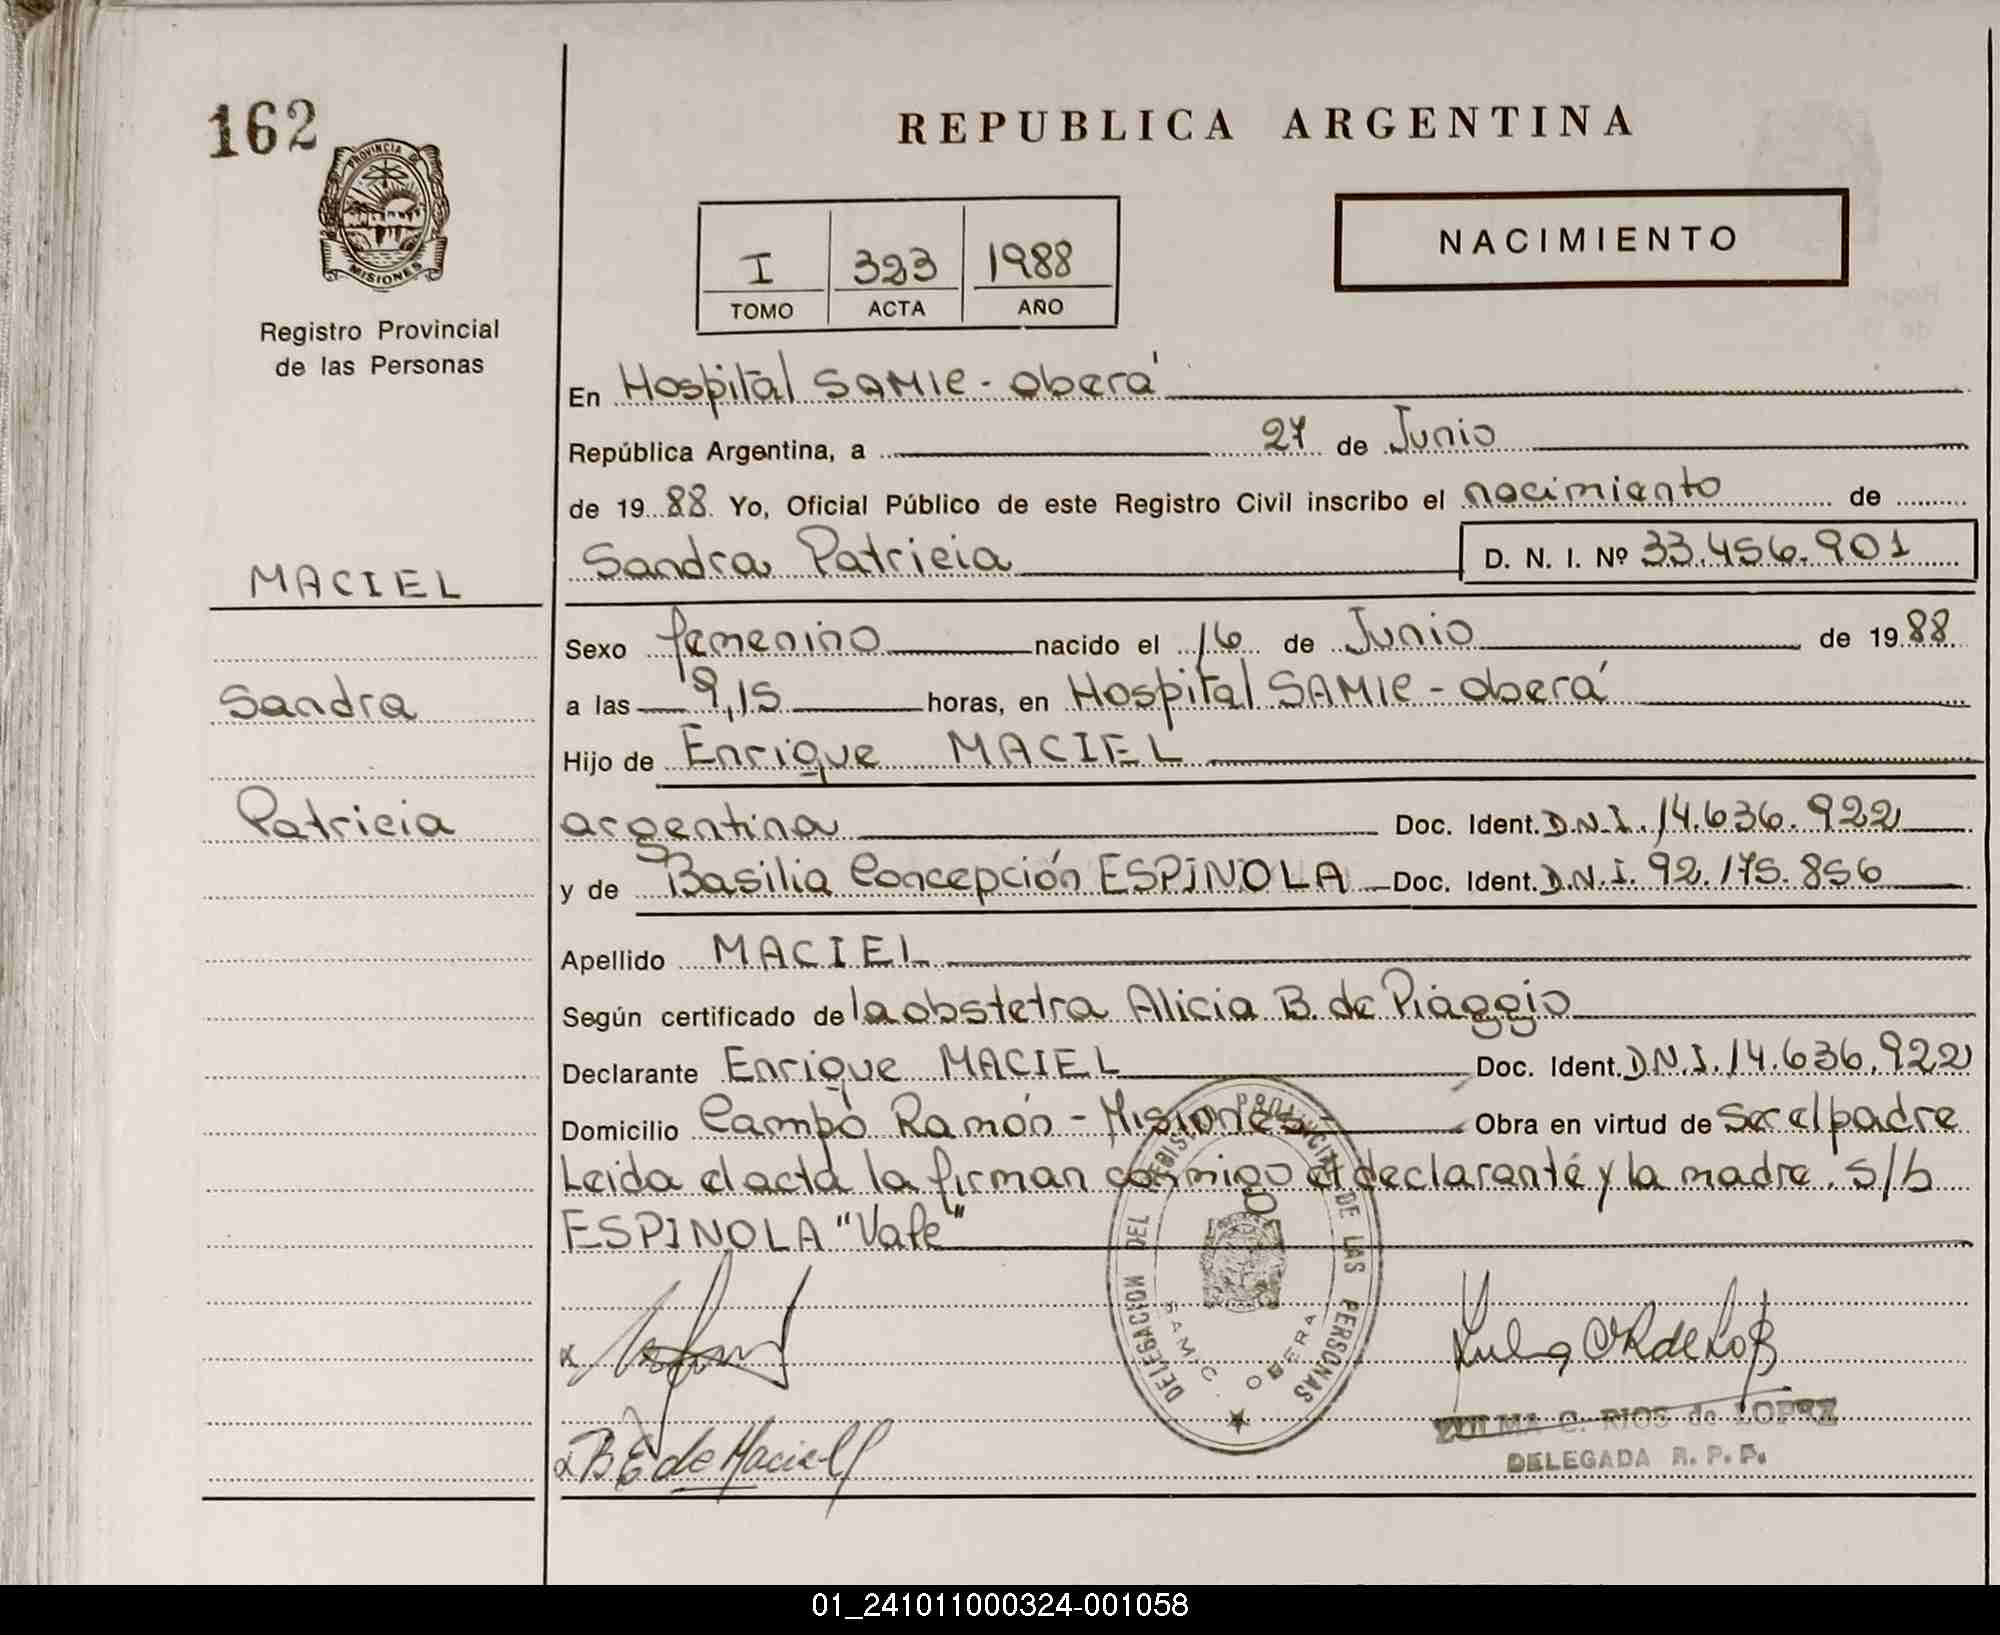 162
PROVINCIA DE
MISIONES
Registro Provincial
de las Personas
REPUBLICA ARGENTINA
I 323 1988
TOMO ACTA AÑO
NACIMIENTO
En Hospital SAMIC - Oberá
República Argentina, a 27 de Junio
de 19 88 Yo, Oficial Público de este Registro Civil inscribo el nacimiento de
Sandra Patricia D. N. I. Nº 33.456.901
MACIEL
Sexo femenino nacido el 16 de Junio de 19 88
Sandra
a las 9,15 horas, en Hospital SAMIC - Oberá
Hijo de Enrique MACIEL
Patricia
argentina Doc. Ident. D.N.I. 14.636.922
y de Basilia Concepción ESPINOLA Doc. Ident. D.N.I. 92.175.856
Apellido MACIEL
Según certificado de la obstetra Alicia B. de Piaggio
Declarante Enrique MACIEL Doc. Ident. D.N.I. 14.636.922
Domicilio Campo Ramón - Misiones Obra en virtud de ser el padre
Leida el acta la firman conmigo el declarante y la madre. s/b
ESPINOLA "Vale"
DELEGACION DEL REGISTRO PROVINCIAL DE LAS PERSONAS
SAMIC. OBERA
B E de Maciel
ZULMA C. RIOS de LOPEZ
DELEGADA R. P. P.
01_241011000324-001058